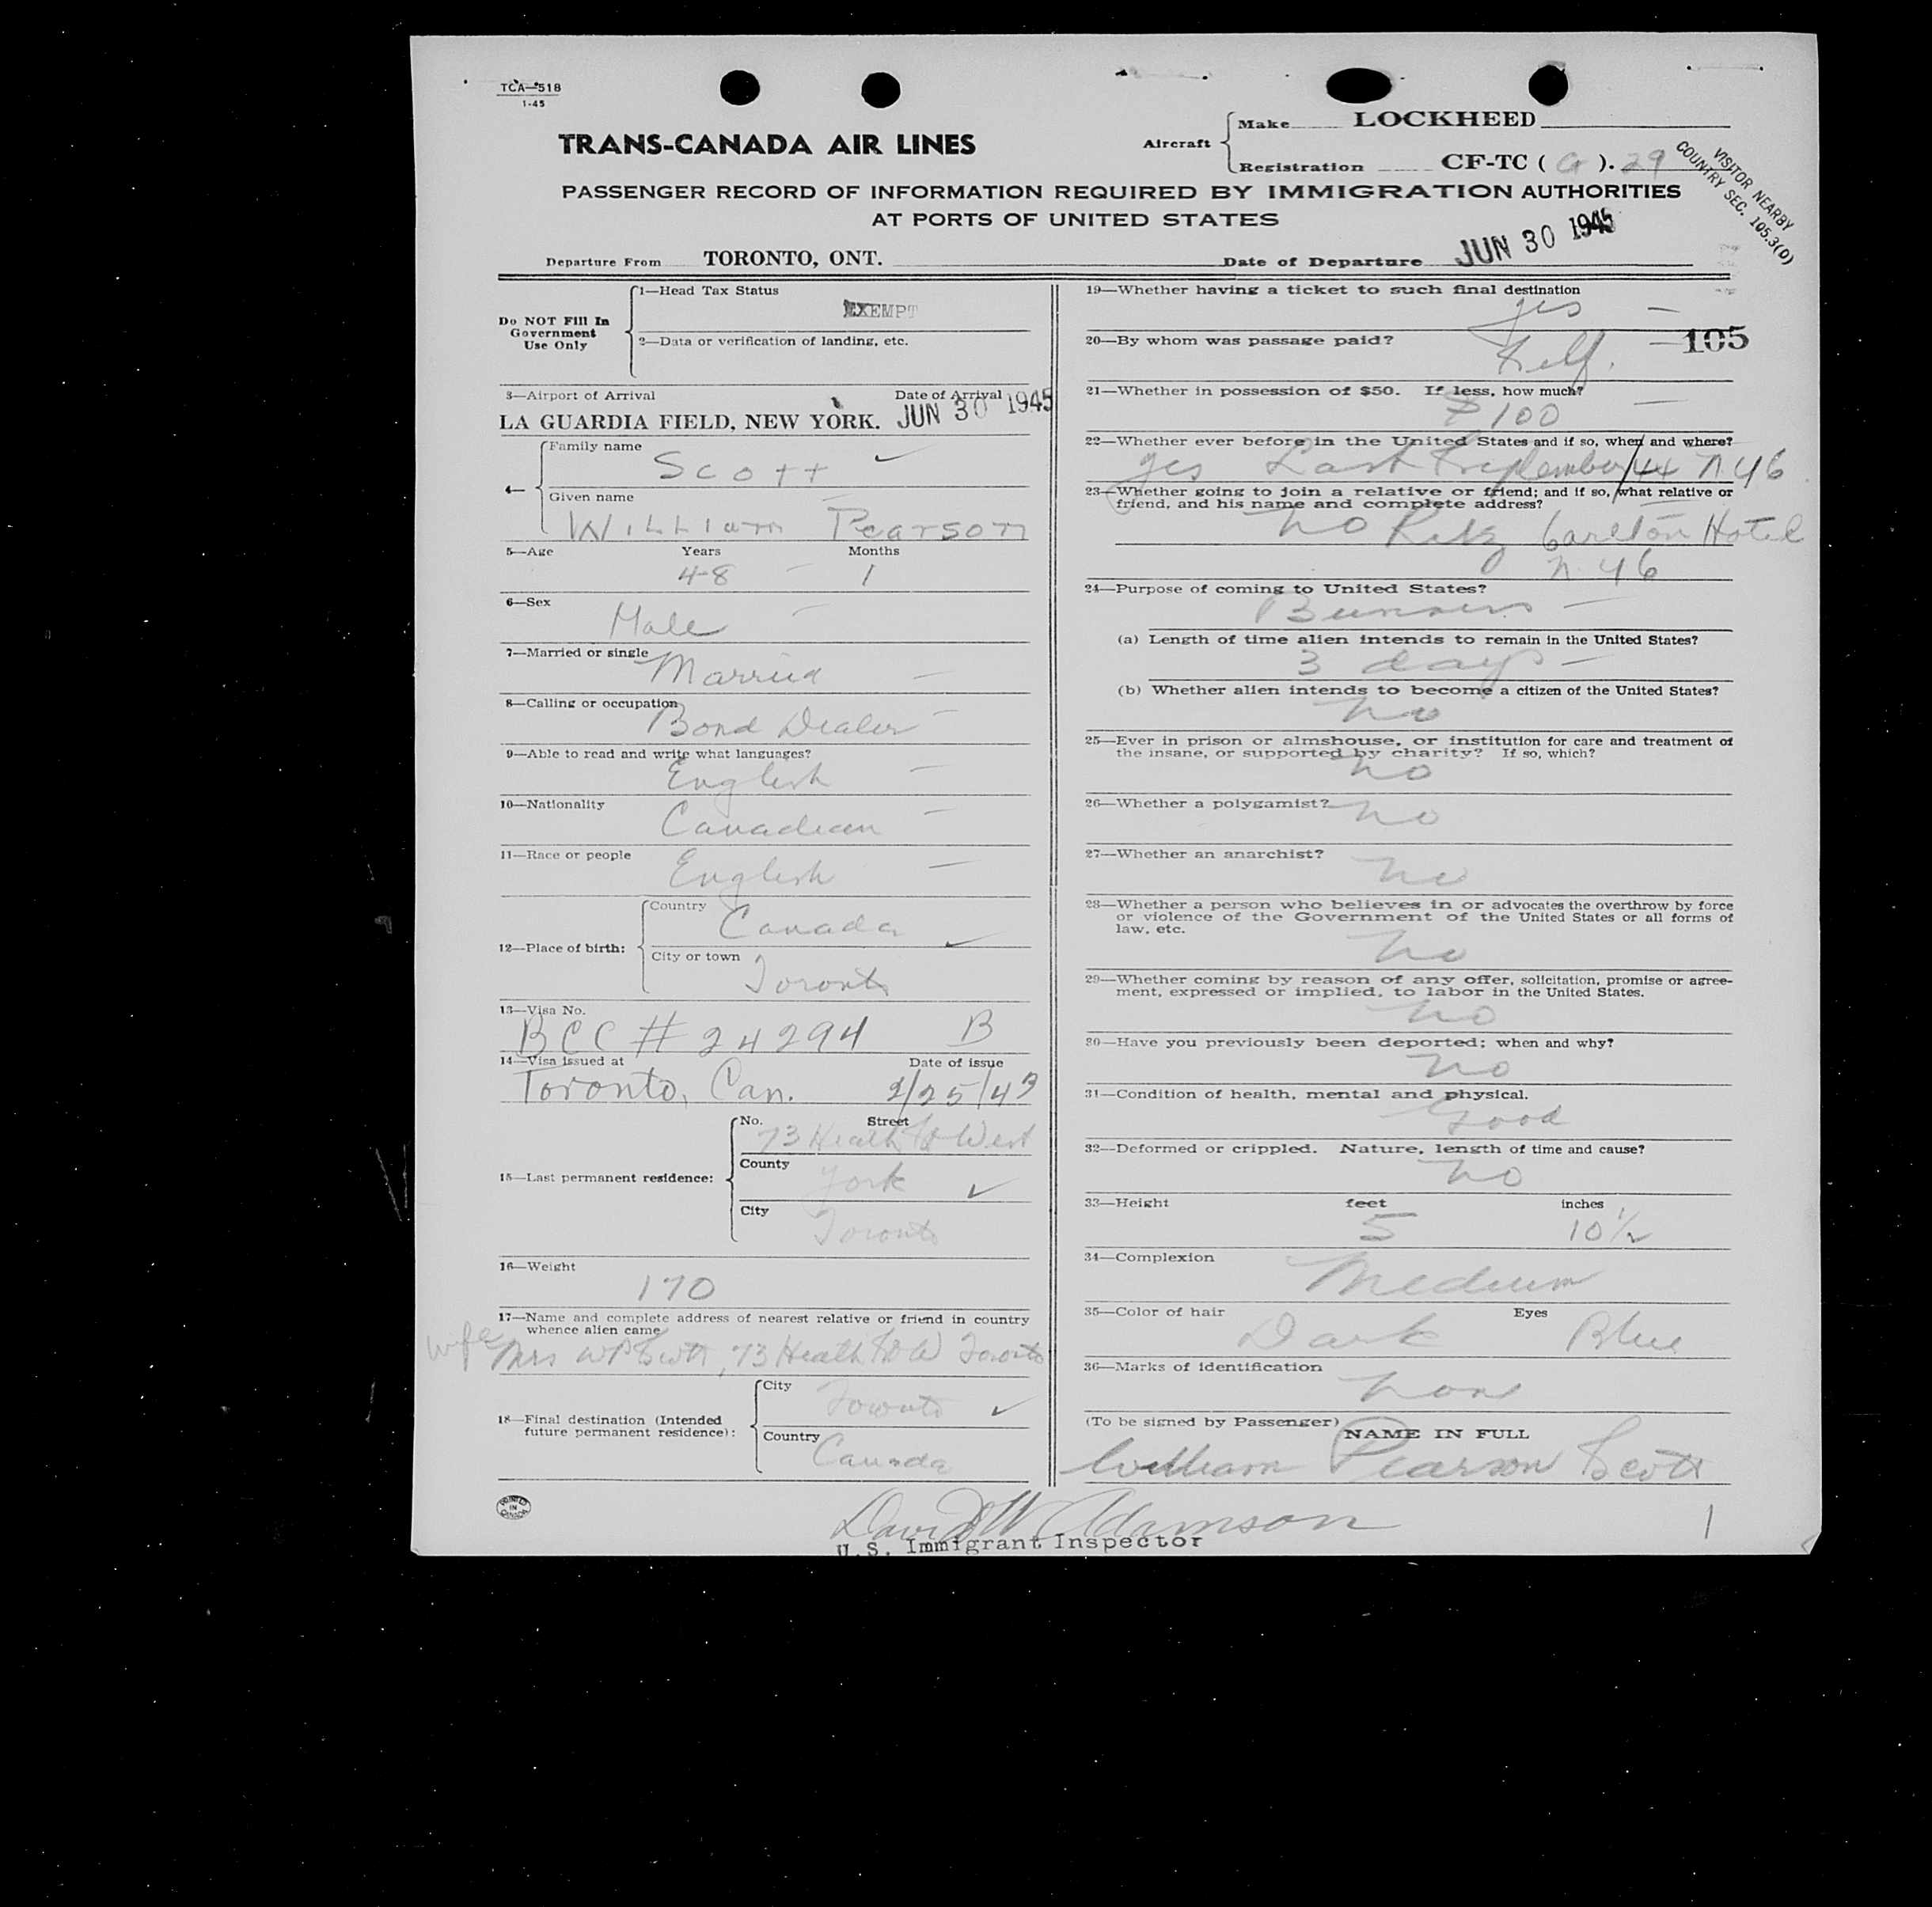 TCA-518
1-45
TRANS-CANADA AIR LINES
Aircraft
Make LOCKHEED
Registration CF-TC ( G ). 29
VISITOR NEARBY
COUNTRY SEC. 105.3(D)
PASSENGER RECORD OF INFORMATION REQUIRED BY IMMIGRATION AUTHORITIES
AT PORTS OF UNITED STATES
Departure From TORONTO, ONT. Date of Departure JUN 30 1945
Do NOT Fill In
Government
Use Only
1—Head Tax Status
EXEMPT
2—Data or verification of landing, etc.
3—Airport of Arrival Date of Arrival
LA GUARDIA FIELD, NEW YORK. JUN 30 1945
4—
Family name
Scott
Given name
William Pearson
5—Age Years Months
48 1
6—Sex
Male
7—Married or single
Married
8—Calling or occupation
Bond Dealer
9—Able to read and write what languages?
English
10—Nationality
Canadian
11—Race or people
English
12—Place of birth:
Country
Canada
City or town
Toronto
13—Visa No.
BCC # 24294 B
14—Visa issued at Date of issue
Toronto, Can. 2/25/43
15—Last permanent residence:
No. Street
73 Heath St West
County
York
City
Toronto
16—Weight
170
17—Name and complete address of nearest relative or friend in country
whence alien came
wife Mrs WP Scott, 73 Heath St W Toronto
18—Final destination (Intended
future permanent residence):
City
Toronto
Country
Canada
19—Whether having a ticket to such final destination
yes
105
20—By whom was passage paid?
Self.
21—Whether in possession of $50. If less, how much?
$100
22—Whether ever before in the United States and if so, when and where?
yes Last September/44 N.Y6
23—Whether going to join a relative or friend; and if so, what relative or
friend, and his name and complete address?
no Ritz Carlton Hotel
N.Y6
24—Purpose of coming to United States?
Business
(a) Length of time alien intends to remain in the United States?
3 days
(b) Whether alien intends to become a citizen of the United States?
no
25—Ever in prison or almshouse, or institution for care and treatment of
the insane, or supported by charity? If so, which?
no
26—Whether a polygamist?
no
27—Whether an anarchist?
no
28—Whether a person who believes in or advocates the overthrow by force
or violence of the Government of the United States or all forms of
law, etc.
no
29—Whether coming by reason of any offer, solicitation, promise or agree-
ment, expressed or implied, to labor in the United States.
no
30—Have you previously been deported; when and why?
no
31—Condition of health, mental and physical.
Good
32—Deformed or crippled. Nature, length of time and cause?
no
33—Height feet inches
5 10½
34—Complexion
Medium
35—Color of hair Eyes
Dark Blue
36—Marks of identification
none
(To be signed by Passenger)
NAME IN FULL
William Pearson Scott
PRINTED
IN
CANADA
David W Adamson
U.S. Immigrant Inspector
1